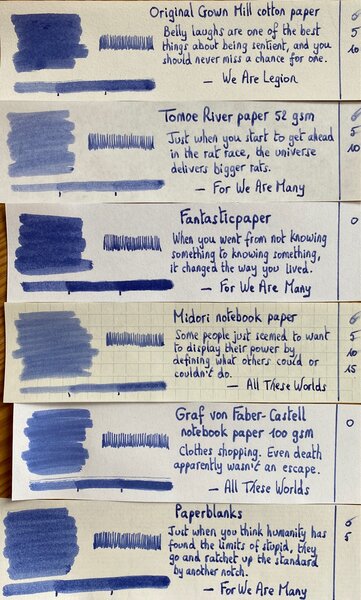 Original Crown Mill cotton paper
Belly laughs are one of the best
things about being sentient, and you
should never miss a chance for one.
— We Are Legion
0
5
10
Tomoe River paper 52 gsm
Just when you start to get ahead
in the rat race, the universe
delivers bigger rats.
— For We Are Many
0
5
10
Fantasticpaper
When you went from not knowing
something to knowing something,
it changed the way you lived.
— For We Are Many
0
Midori notebook paper
Some people just seemed to want
to display their power by
defining what others could or
couldn't do.
— All These Worlds
0
5
10
15
Graf von Faber-Castell
notebook paper 100 gsm
Clothes shopping. Even death
apparently wasn't an escape.
— All These Worlds
0
Paperblanks
Just when you think humanity has
found the limits of stupid, they
go and ratchet up the standard
by another notch.
— For We Are Many
0
5